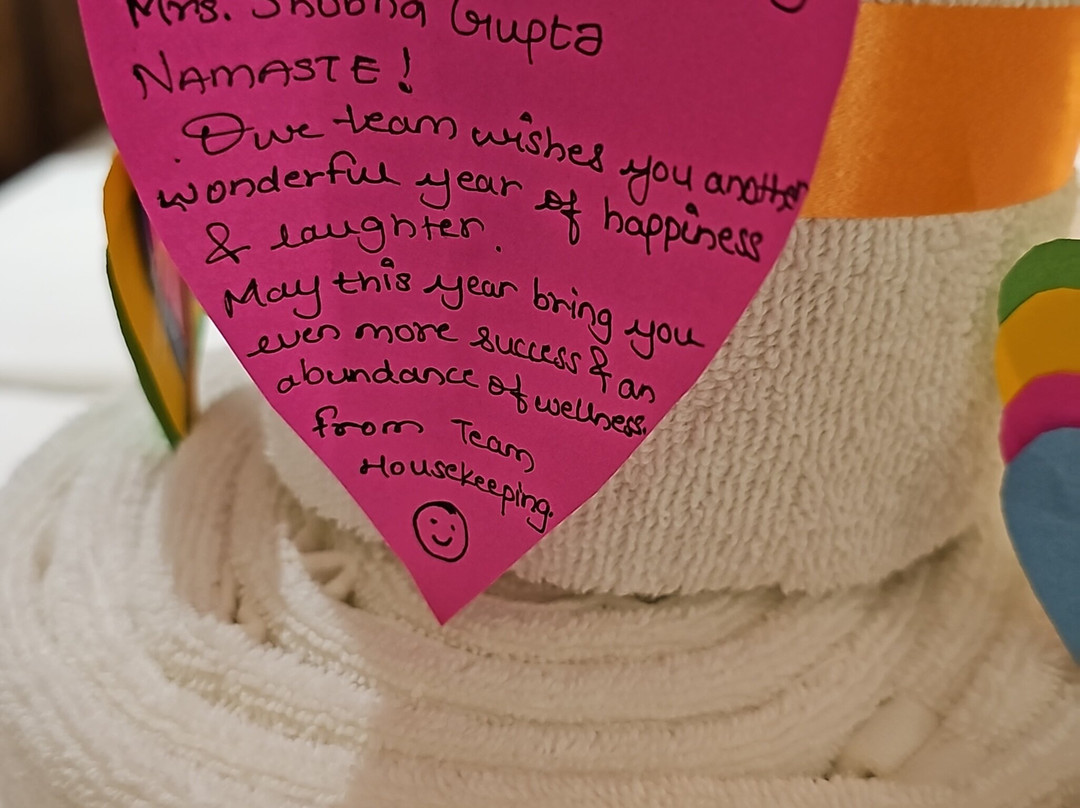 Mrs. Shobha Gupta
NAMASTE!
Our team wishes you another
wonderful year of happiness
& laughter.
May this year bring you
even more success & an
abundance of wellness.
from Team
Housekeeping.